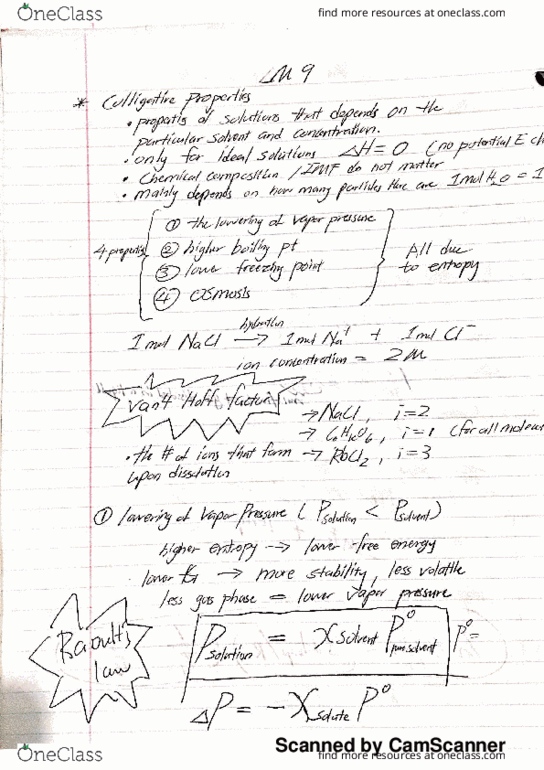 OneClass
find more resources at oneclass.com
M 9
* Colligative Properties
• propertis of solutions that depends on the
particular solvent and concentration.
• only for ideal solutions ΔH = 0 (no potential E
• chemical composition / IMF do not matter
• mainly depends on how many particles there are 1mol H2O = 1
4 propertis
① the lowering of vapor pressure
② higher boiling pt
③ lower freezing point
④ osmosis
All due
to entropy
hydration
1 mol NaCl → 1 mol Na+ + 1 mol Cl-
ion concentration = 2M
van't Hoff factor
→ NaCl, i=2
→ C6H12O6, i=1 (for all
• the # of ions that form → RbCl2, i=3
upon dissolution
① lowering of vapor pressure (Psolution < Psolvent)
higher entropy → lower free energy
lower → more stability, less volatile
less gas phase = lower vapor pressure
Raoult's
law
Psolution = Xsolvent P°pure solvent
P° =
ΔP = -Xsolute P°
Scanned by CamScanner
OneClass
find more resources at oneclass.com